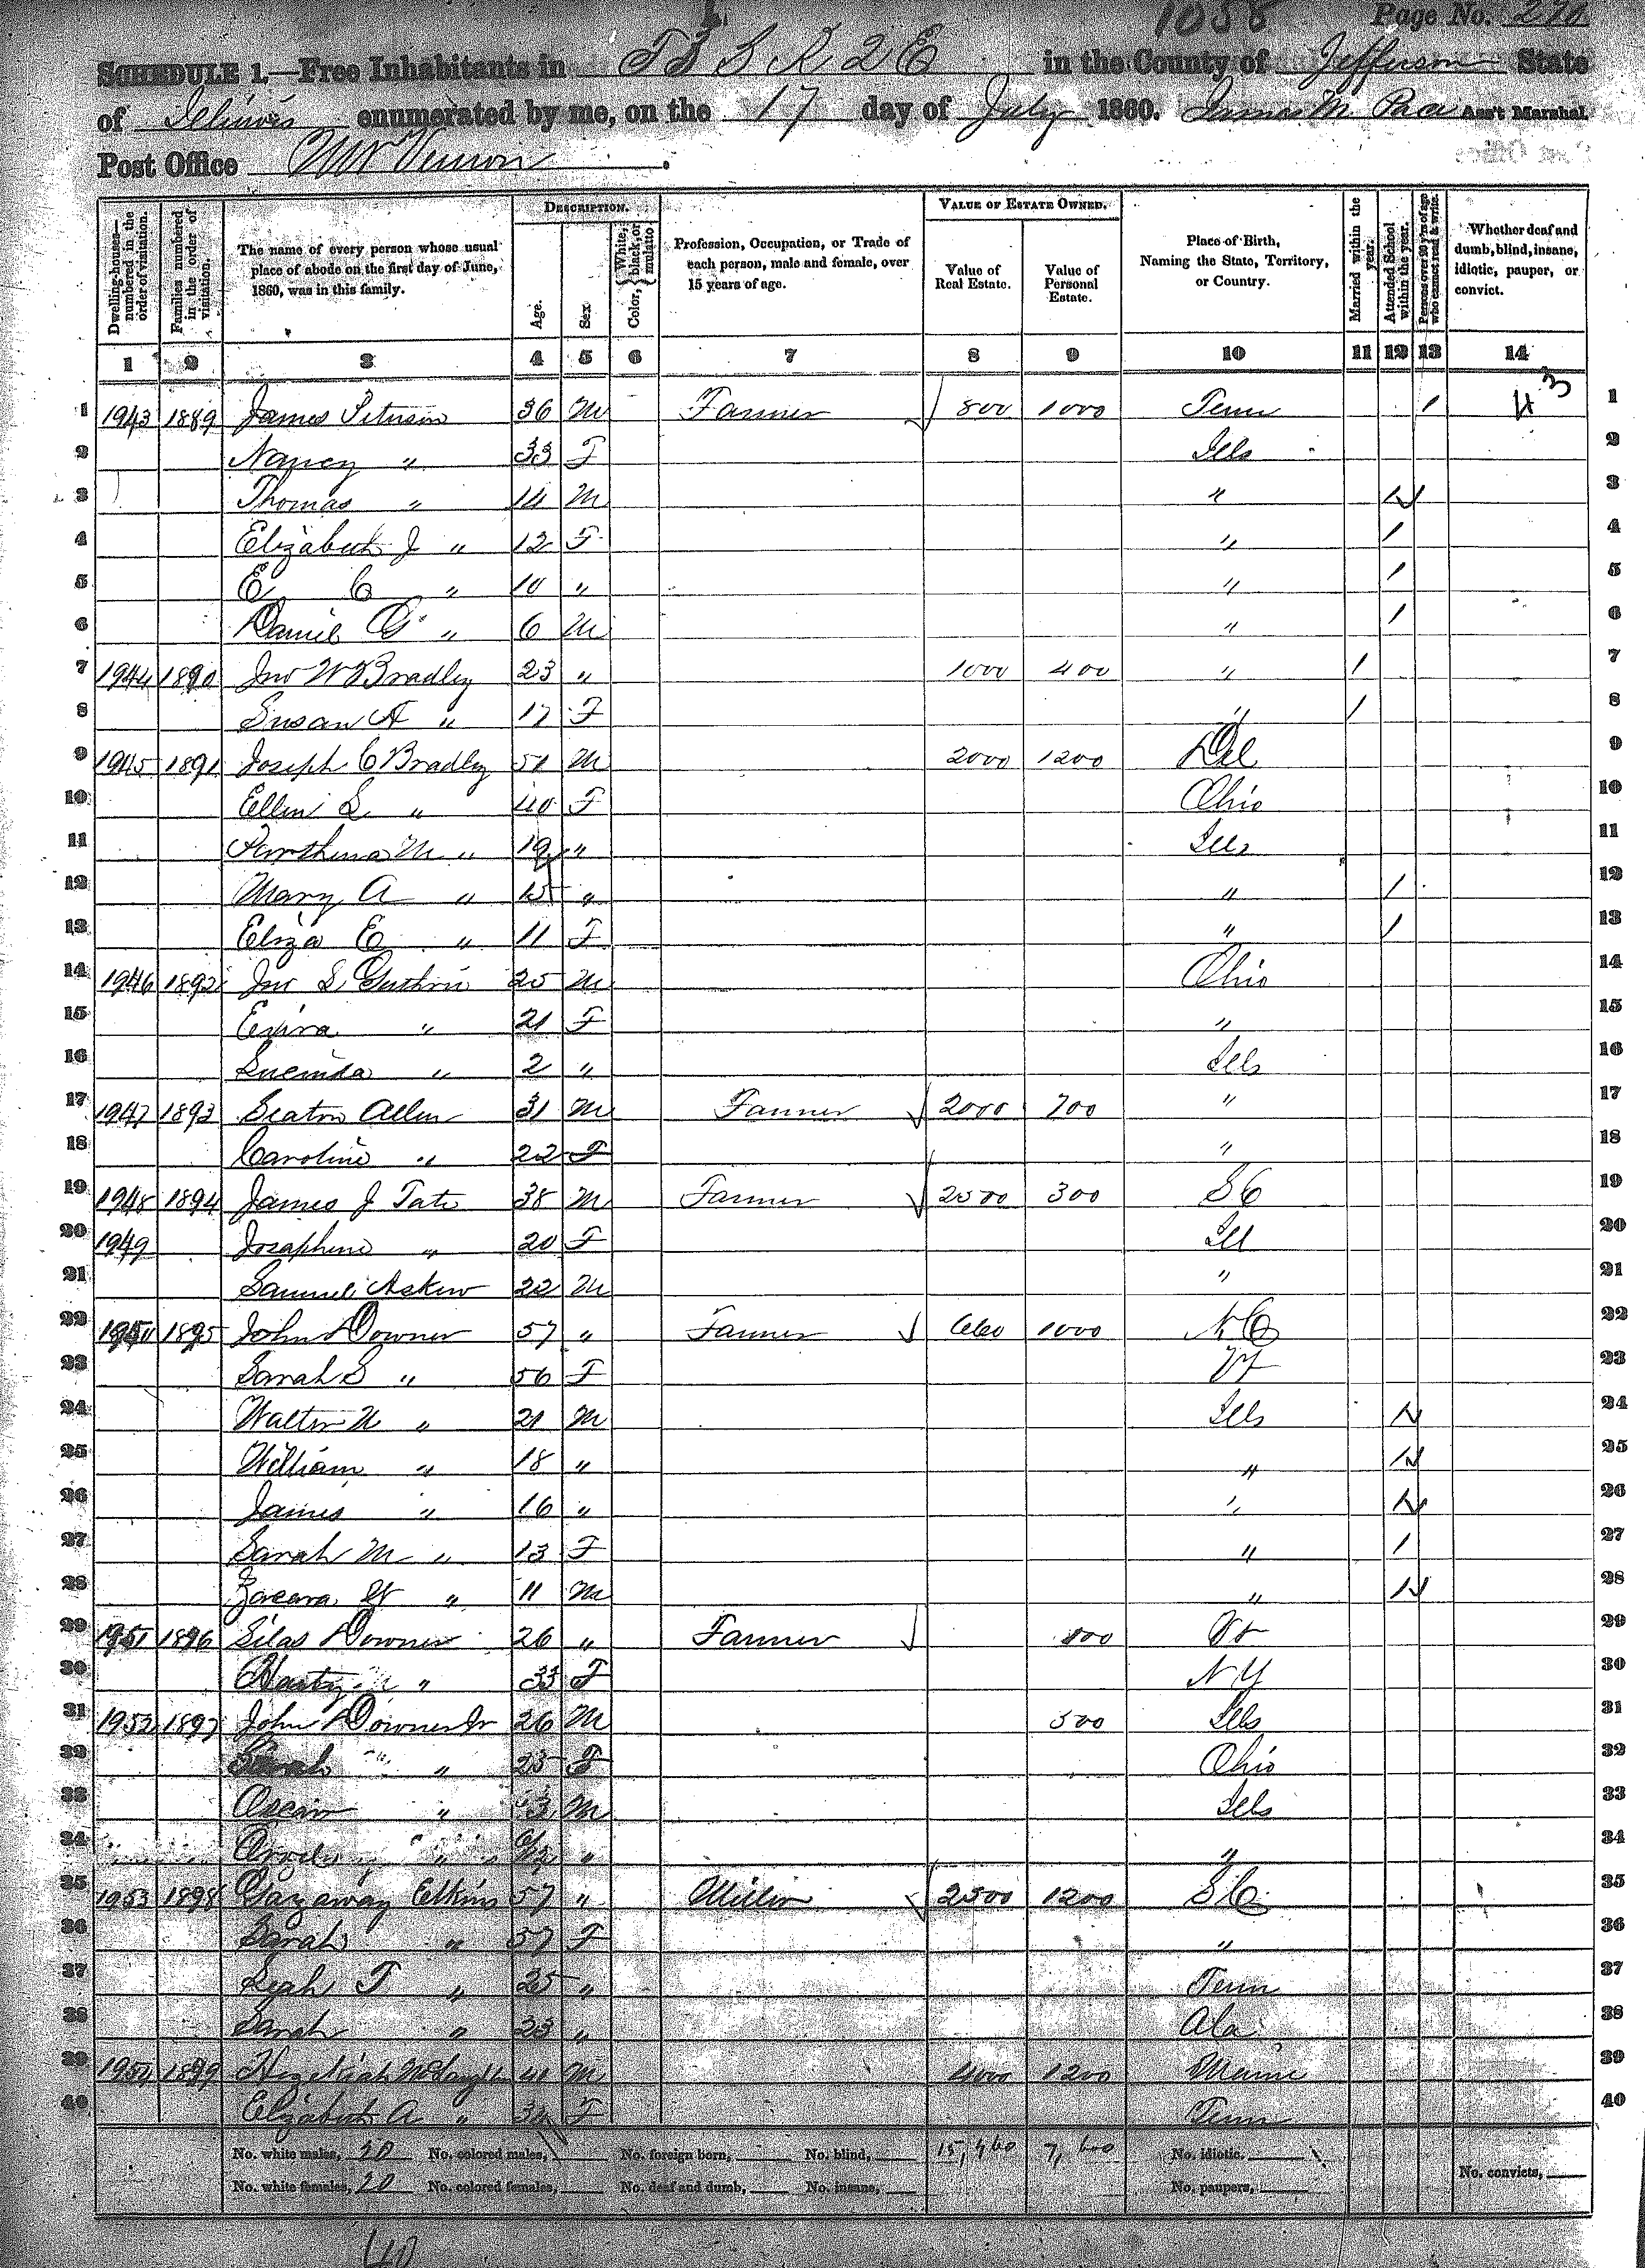 1058 Page No. 270
SCHEDULE 1.—Free Inhabitants in T 3 S R 2 E in the County of Jefferson State
of Illinois enumerated by me, on the 17 day of July 1860. James M. Pace Ass't Marshal.
Post Office Mt Vernon.
DESCRIPTION. VALUE OF ESTATE OWNED.
Dwelling-houses—numbered in the order of visitation. Families numbered in the order of visitation. The name of every person whose usual place of abode on the first day of June, 1860, was in this family. Age. Sex Color, White, black, or mulatto Profession, Occupation, or Trade of each person, male and female, over 15 years of age. Value of Real Estate. Value of Personal Estate. Place of Birth, Naming the State, Territory, or Country. Married within the year. Attended School within the year. Persons over 20 y'rs of age who cannot read & write. Whether deaf and dumb, blind, insane, idiotic, pauper, or convict.
1 2 3 4 5 6 7 8 9 10 11 12 13 14
1 1943 1889 James 36 M Farmer 800 1000 Tenn 1 43 1
2 Nancy " 33 F Ills 2
3 Thomas " 14 M " 1 3
4 Elizabeth J " 12 F " 1 4
5 E C " 10 " " 1 5
6 Daniel G " 6 M " 1 6
7 1944 1890 Jno W Bradley 23 " 1000 400 " 1 7
8 Susan A " 17 F " 1 8
9 1945 1891 Joseph C Bradley 51 M 2000 1200 Del 9
10 Ellen L " 40 F Ohio 10
11 Parthena M " 19 " Ills 11
12 Mary A " 15 " " 1 12
13 Eliza E " 11 F " 1 13
14 1946 1892 Jno S Guthrie 25 M Ohio 14
15 " 21 F " 15
16 Lucinda " 2 " Ills 16
17 1947 1893 Seaton Allen 31 M Farmer 2000 700 " 17
18 Caroline " 22 F " 18
19 1948 1894 James J Tate 38 M Farmer 2500 300 SC 19
20 1949 Josephine " 20 F Ill 20
21 Samuel Askew 22 M " 21
22 1950 1895 John Downer 57 " Farmer 660 1000 22
23 Sarah S " 56 F Vt 23
24 Walter " 21 M Ills 1 24
25 William " 18 " " 1 25
26 James " 16 " " 1 26
27 Sarah M " 13 F " 1 27
28 " 11 M " 1 28
29 1951 1896 Silas Downer 26 " Farmer Vt 29
30 " 33 F N Y 30
31 1952 1897 John Downer Jr 26 M 300 Ills 31
32 Sarah " 25 F Ohio 32
33 " 3 M Ills 33
34 " " " 34
35 1953 1898 Gazaway Elkins 57 " Miller 2500 1200 SC 35
36 Sarah " 57 F " 36
37 Leah T " 25 " Tenn 37
38 Sarah " 23 " Ala 38
39 1954 1899 Hezekiah 41 M 4000 1200 Maine 39
40 Elizabeth A " 34 F Tenn 40
No. white males, 20 No. colored males, No. foreign born, No. blind, 15,460 7,600 No. idiotic. 
No. white females, 20 No. colored females, No. deaf and dumb, No. insane, No. paupers, No. convicts,
40